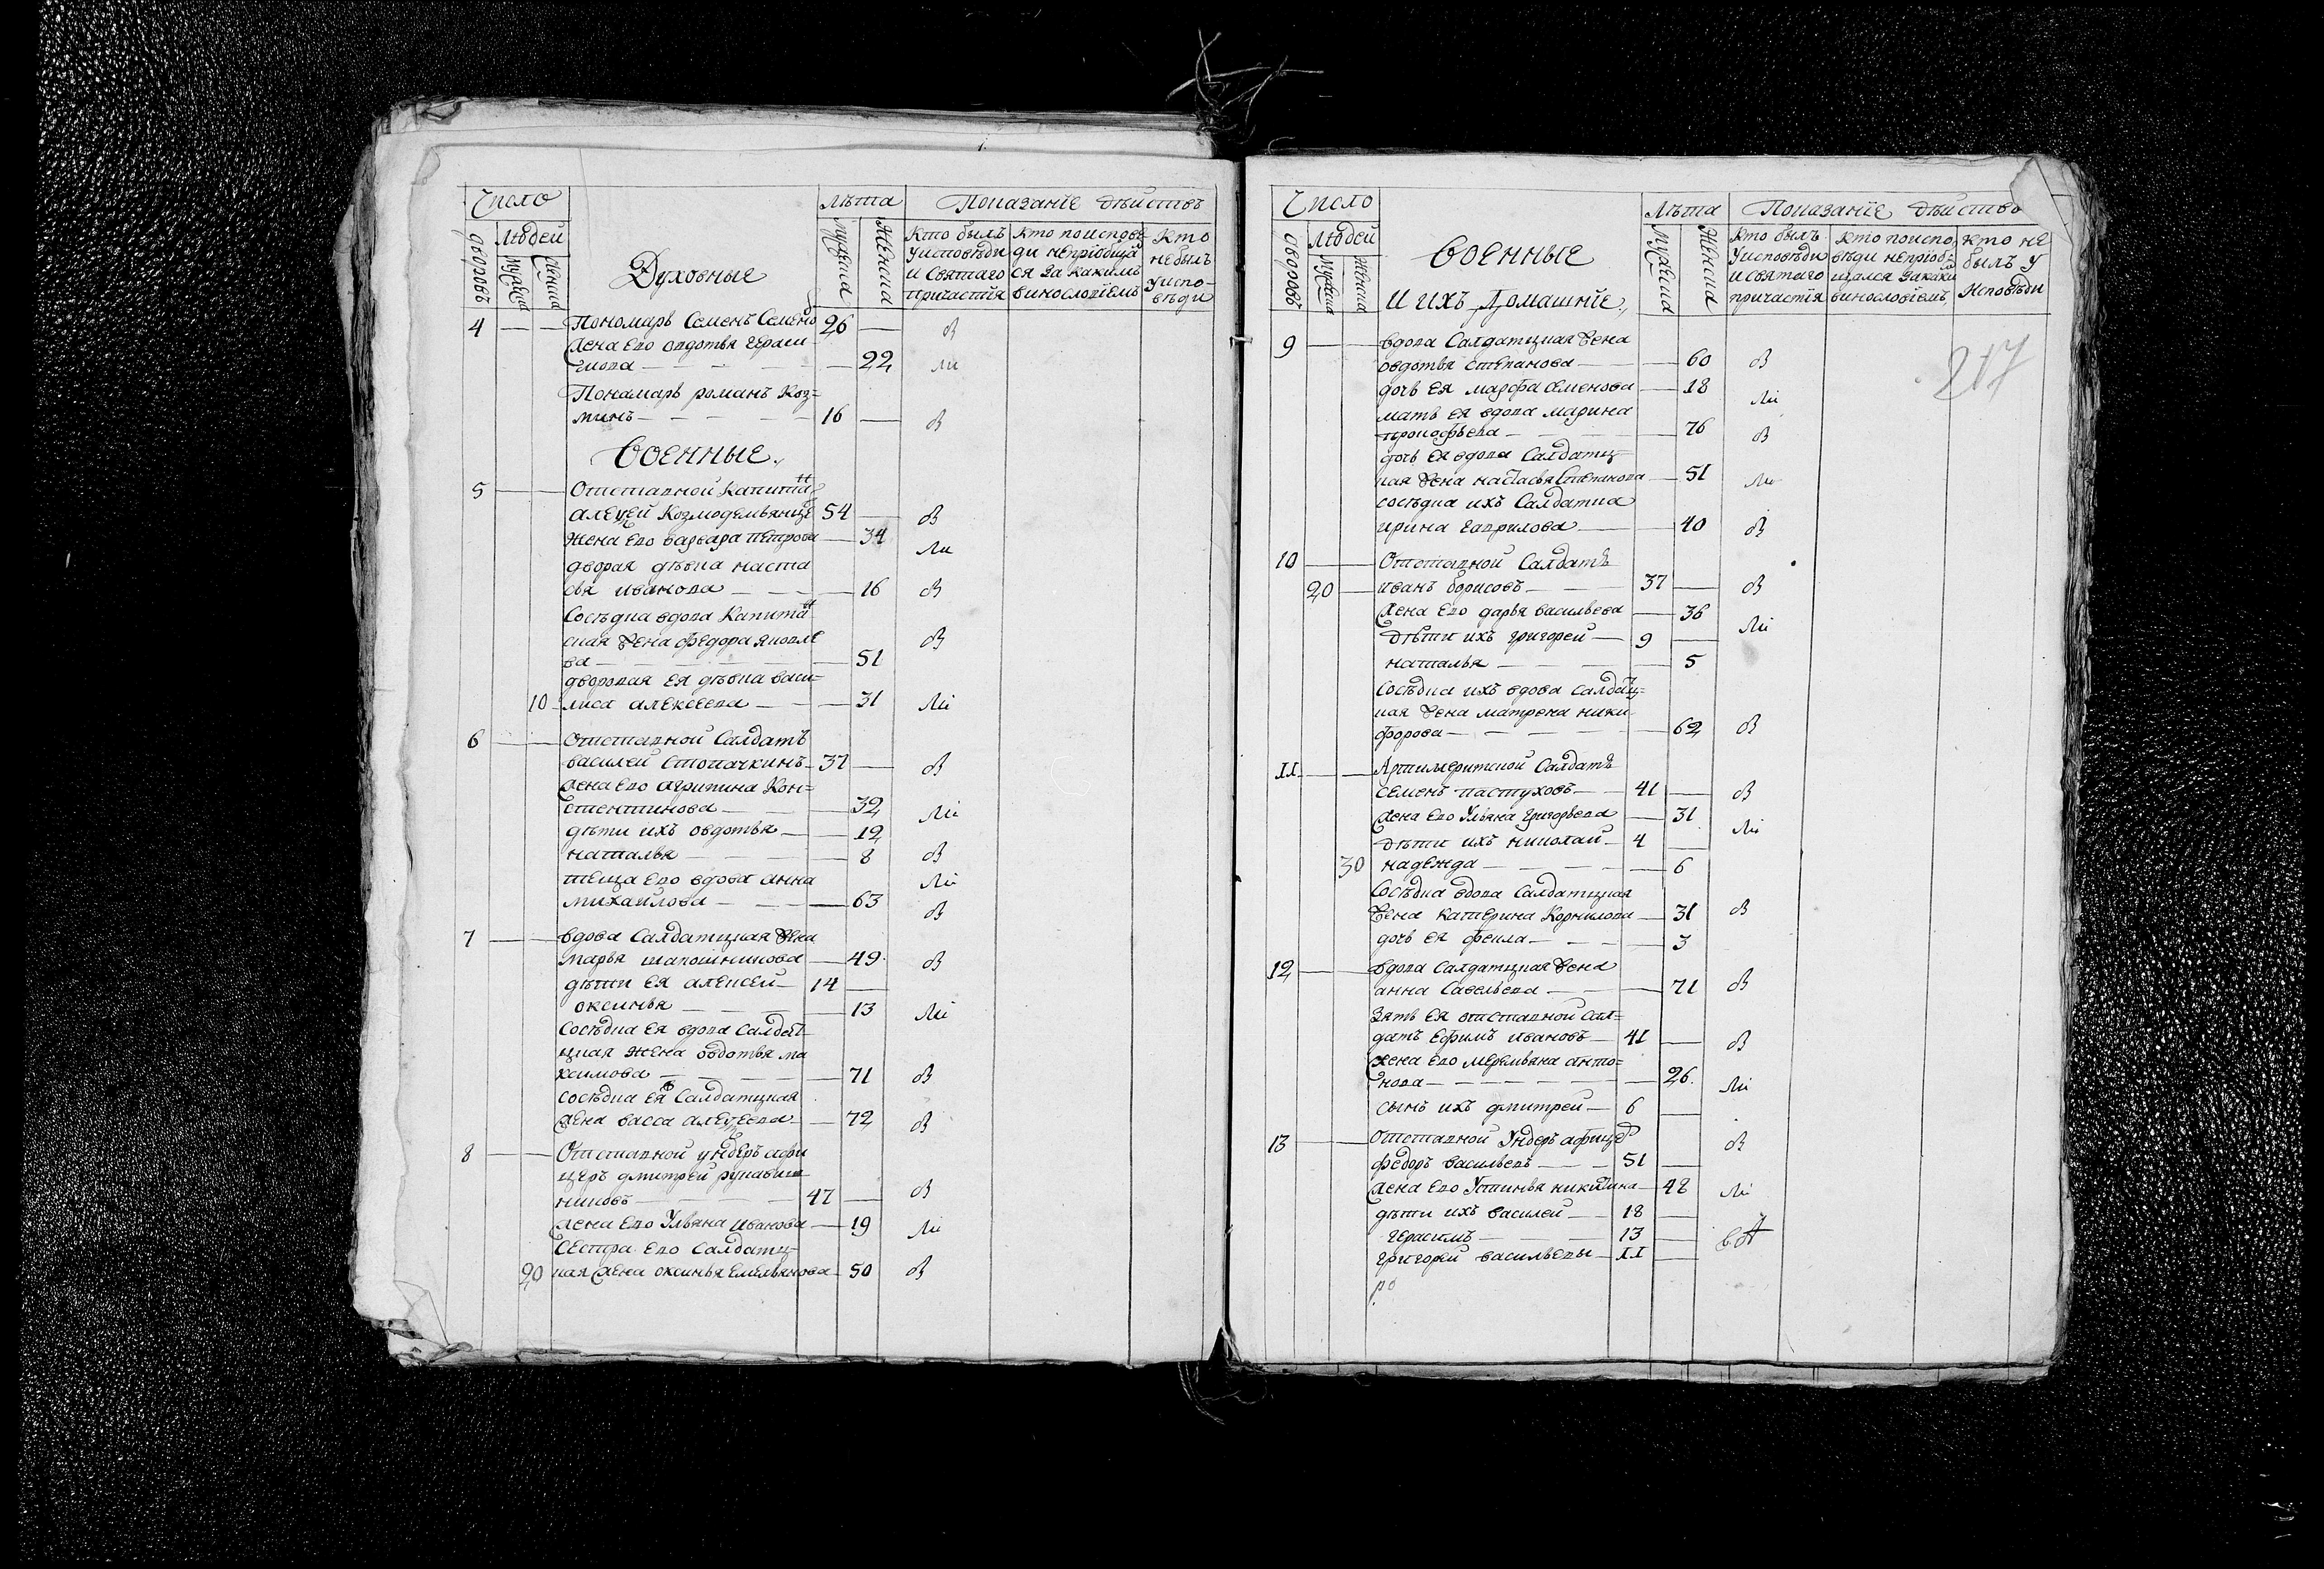 Число
Людей
Духовные
Лѣта
Показанїе дѣйствъ
дворовъ
Мужеска
Женска
мужеска
женска
Кто былъ
У исповѣди
и Святаго
причастїя
Кто по исповѣ
ди не прїобща
ся За какимъ
винословїемъ
Кто
не былъ
У испо-
вѣди
4 — — Пономарь Семенъ Семено 26 — в
жена его овдотья гераси
мова — — 22 ли
Пономарь романъ Коз=
минъ — 16 — в
Военные.
5 — — Отставной Капитан
алеѯей Козмодемьянце 54 — в
жена его варвара петрова — 34 ли
дворая дѣвка наста
сья иванова — — 16 в
Сосѣдка вдова Капитан
ская жена федора яковле в
ва — — 51
дворовая ея дѣвка васи=
10 лиса алексеева — — 31 ли
6 — — Отставной Салдатъ
василей Стопачкинъ — 37 — в
жена его агрипина Кон=
стентинова — — 32 ли
дѣти ихъ овдотья — — 12
наталья — — 8 в
теща его вдова анна ли
михайлова — — 63 в
7 — — вдова Салдатцкая жена
марья шапошникова — 49 в
дѣти ея алексей — 14 —
оксинья — — 13 ли
Сосѣдка ея вдова Салдат
цкая жена овдотья ма
ксимова — — 71 в
сосѣдка ея Салдатцкая
жена васса алеѯеева — — 72 в
8 — — Отставной ундеръ афи
церъ дмитрей рукавиш
никовъ — 47 — в
жена его Ульяна иванова — 19 ли
Сестра его Салдатц=
20 кая жена оксинья Емельянова — 50 в
Число
Людей
Военные
и ихъ Домашнїе.
Лѣта
Показанїе дѣйство
дворовъ
Мужеска
Женска
Мужеска
Женска
Кто былъ
У исповѣди
и Святаго
причастїя
Кто по испо
вѣди не прїоб=
щался За каки
винословїемъ
Кто не
былъ у
Исповѣди
217
9 — — вдова Салдатцкая жена
овдотья степанова — — 60 в
дочь ея марфа Семенова — 18 ли
мать ея вдова марина
прокофьева — — 76 в
дочь ея вдова Салдатц=
кая жена настасья Степанова — 51 ли
сосѣдка ихъ Салдатка
ирина гаврилова — — 40 в
10 — — Отставной Салдатъ
20 — иванъ борисовъ — 37 — в
жена его дарья васильева — 36 ли
Дѣти ихъ григорей — 9 —
наталья — — 5
Сосѣдка ихъ вдова салдатц=
кая жена матрена ники
форова — — 62 в
11 — — Артилеритской Салдатъ
семенъ пастуховъ — 41 — в
жена его Ульяна григорьева — 31 ли
Дѣти ихъ николай — 4 —
30 надежда — — 6
Сосѣдка вдова Салдатцкая
жена катерина Корнилова — 31 в
дочь ея фекла — — 3
12 — — вдова Салдатцкая жена
анна Савельева — — 71 в
Зять ея отставной сал=
датъ Ефимъ ивановъ — 41 — в
жена его мелемьяна анто=
нова — — 26 ли
сынъ ихъ дмитреи — 6 —
13 — — Отставной Ундеръ афице в
федоръ васильевъ — 51 —
жена его Устинья никитина — 48 ли
дѣти ихъ василеи — 18 —
герасимъ — 13 —
григорей васильевы — 11 —
ро